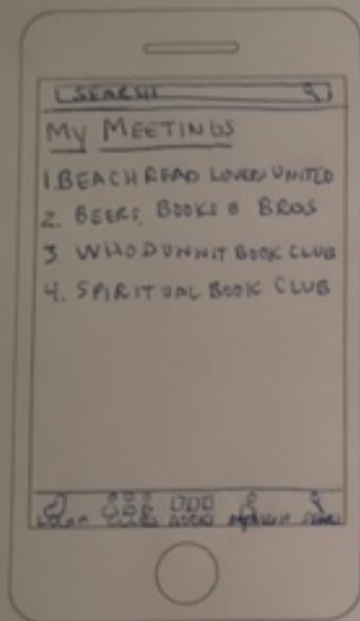 SEARCH
MY MEETINGS
1. BEACH READ LOVERS UNITED
2. BEERS, BOOKS & BROS
3 WHODUNNIT BOOK CLUB
4. SPIRITUAL BOOK CLUB
CLUBS BOOKS